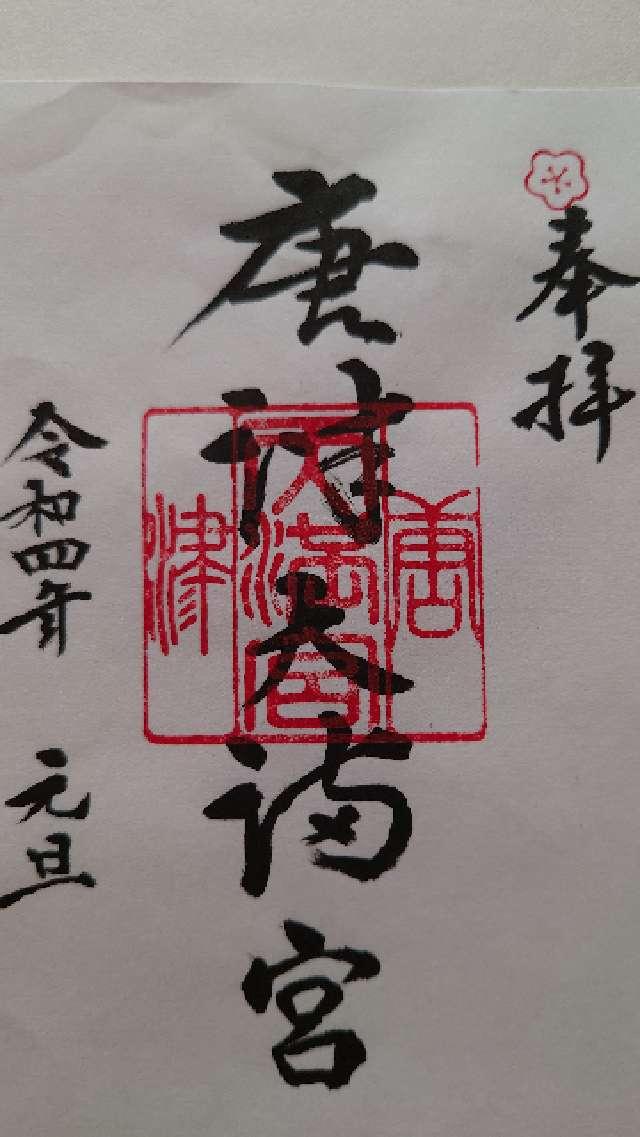 奉拝
唐津天満宮
令和四年 元旦
唐津
天満宮